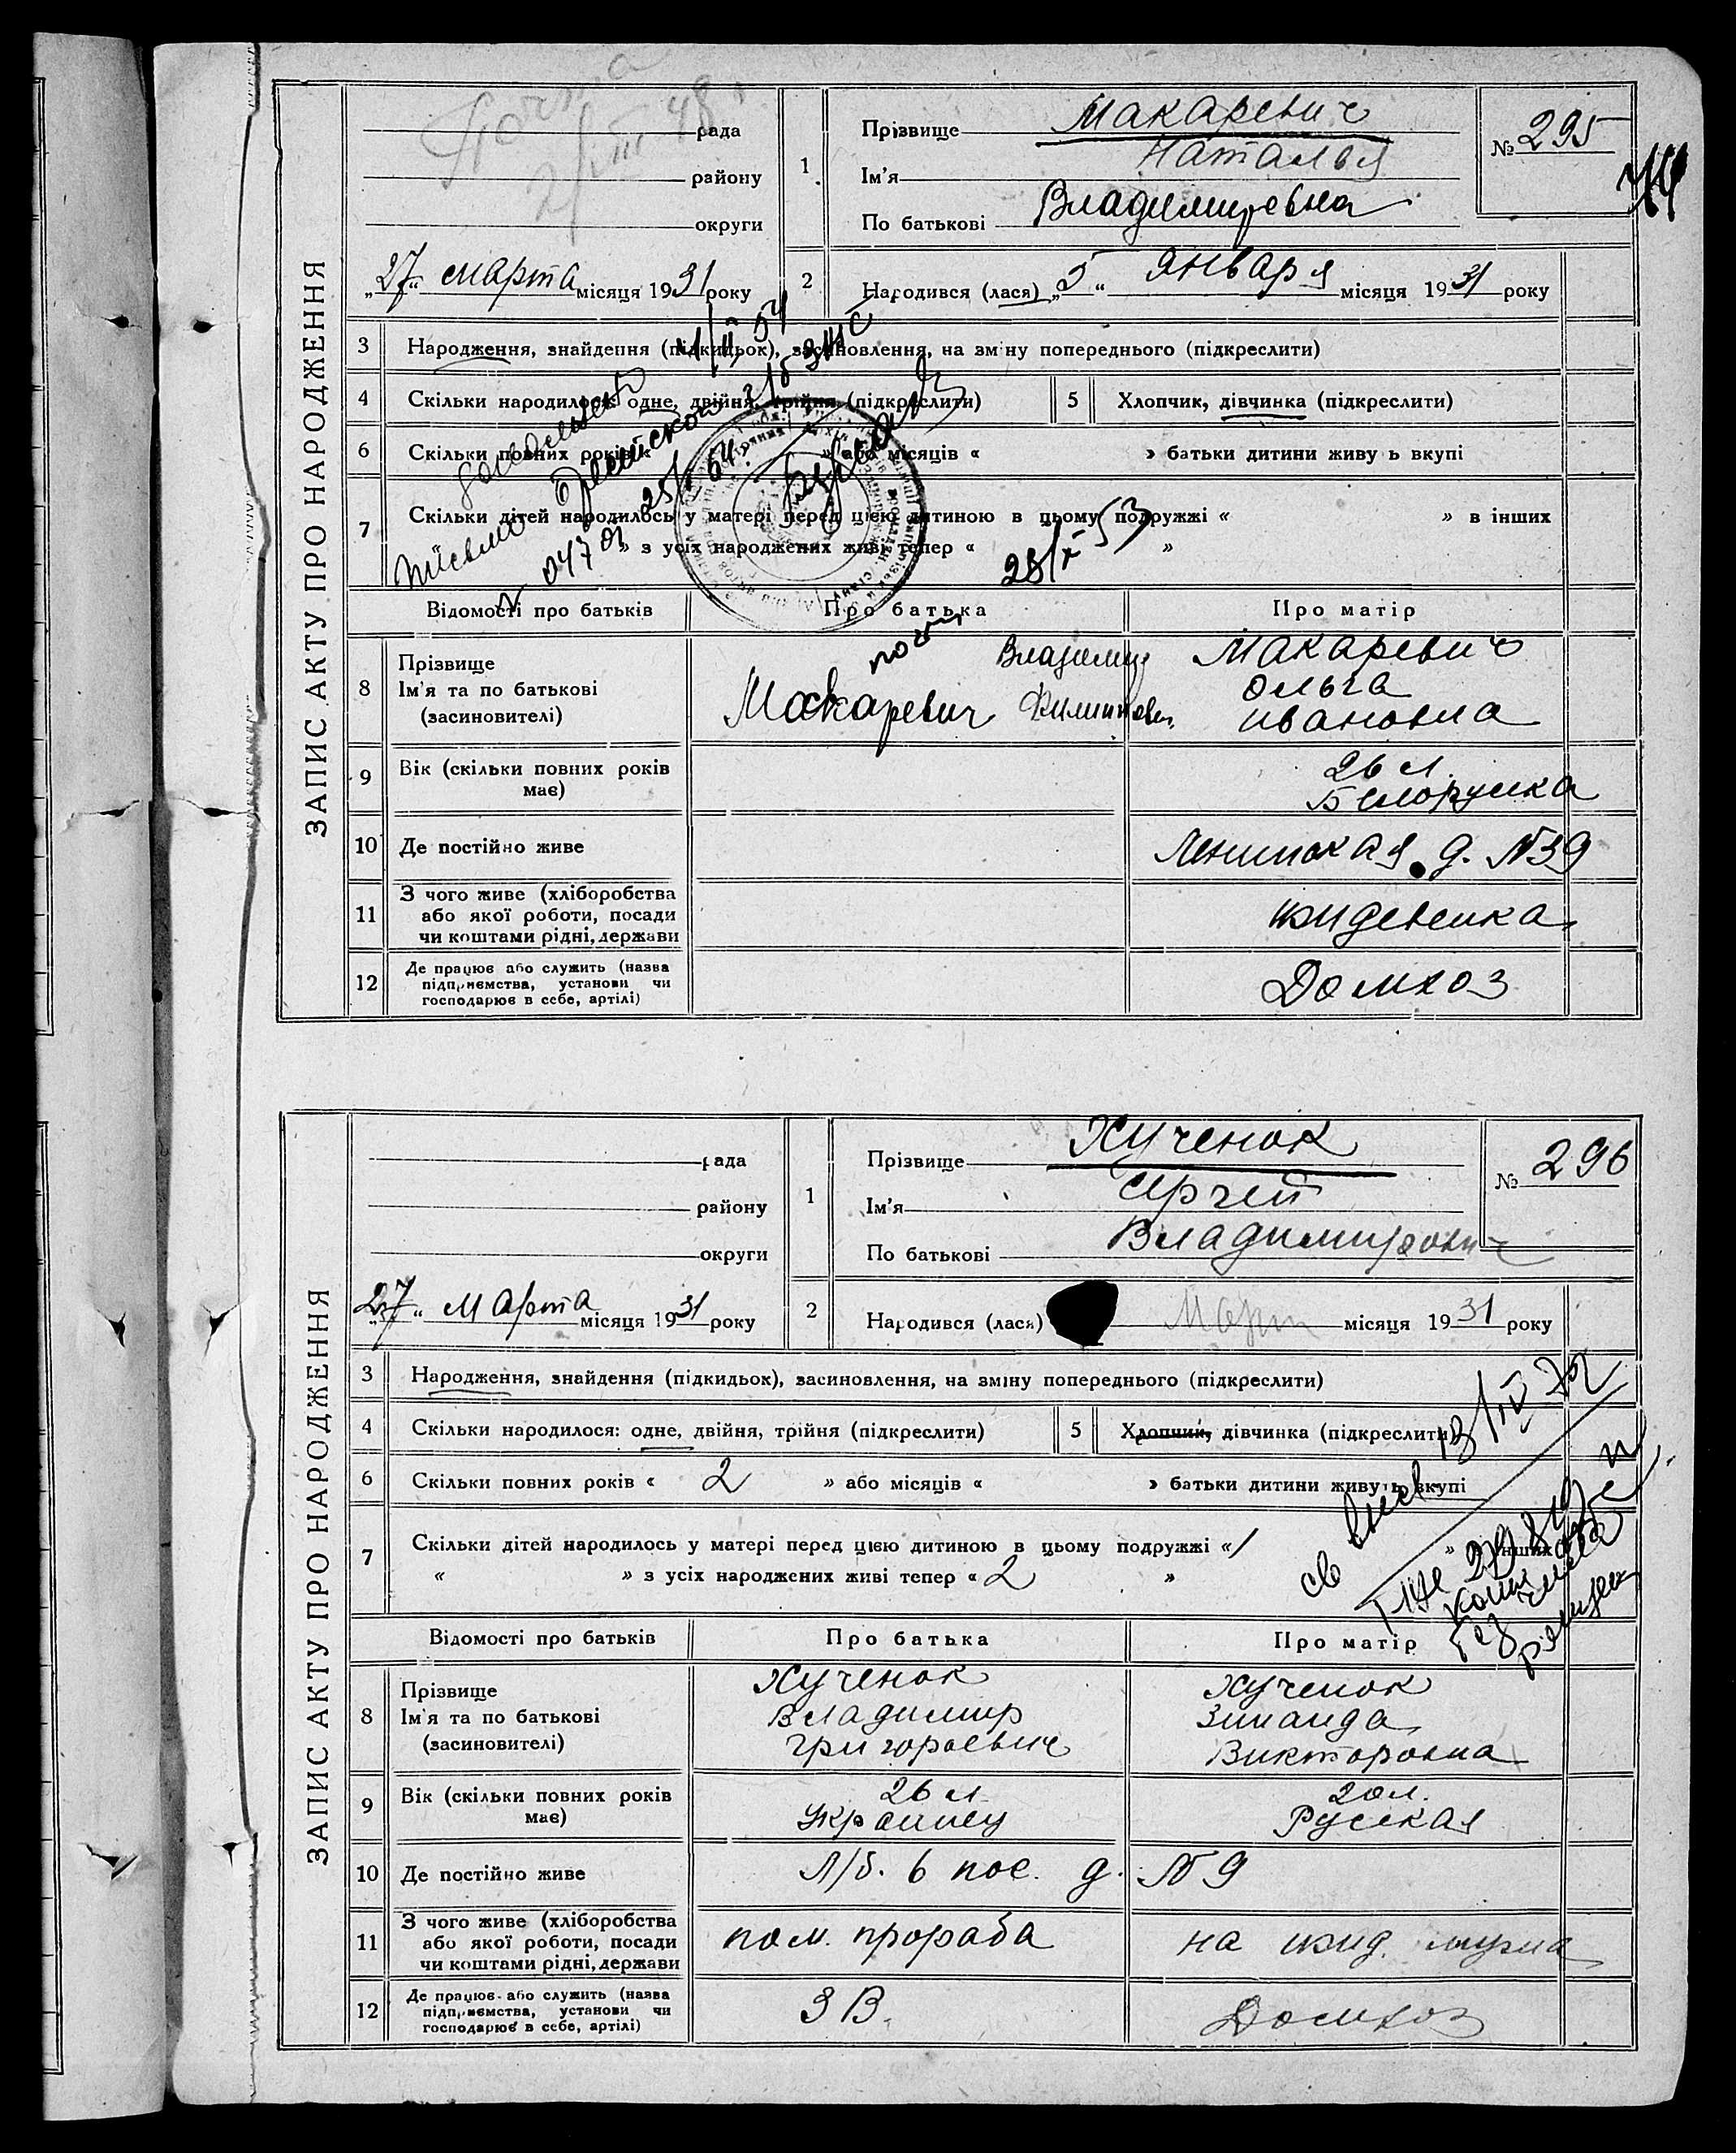 ЗАПИС АКТУ ПРО НАРОДЖЕННЯ
рада
району
округи
1
Прізвище Макаревич
Ім'я Наталья
По батькові Владимировна
№ 295
„27“ марта місяця 1931 року
2
Народився (лася) „5“ января місяця 1931 року
3 Народження, знайдення (підкидьок), засиновлення, на зміну попереднього (підкреслити)
4 Скільки народилося: одне, двійня, трійня (підкреслити)
5 Хлопчик, дівчинка (підкреслити)
6 Скільки повних років « » або місяців « » батьки дитини живу ь вкупі
7 Скільки дітей народилось у матері перед цією дитиною в цьому подружжі « » в інших
» з усіх народжених живі тепер « »
письмо
№ 04701 25/I 54
28/X 53
Відомості про батьків Про батька Про матір
8 Прізвище
Ім'я та по батькові
(засновителі)
Макаревич Владимир
Филиппович
Макаревич
Ольга
Ивановна
9 Вік (скільки повних років має)
26 л.
Белоруска
10 Де постійно живе
Ленинская д. №39
11 З чого живе (хліборобства
або якої роботи, посади
чи коштами рідні, держави
иждевенка
12 Де працює або служить (назва
підприємства, установи чи
господарює в себе, артілі)
Домхоз
ЗАПИС АКТУ ПРО НАРОДЖЕННЯ
рада
району
округи
1
Прізвище Хученок
Ім'я Сергей
По батькові Владимирович
№ 296
„27“ марта місяця 1931 року
2
Народився (лася) Март місяця 1931 року
3 Народження, знайдення (підкидьок), засиновлення, на зміну попереднього (підкреслити)
4 Скільки народилося: одне, двійня, трійня (підкреслити)
5 Хлопчик, дівчинка (підкреслити)
6 Скільки повних років « 2 » або місяців « » батьки дитини живуть вкупі
7 Скільки дітей народилось у матері перед цією дитиною в цьому подружжі «1 » в інших
« » з усіх народжених живі тепер « 2 »
Відомості про батьків Про батька Про матір
8 Прізвище
Ім'я та по батькові
(засиновителі)
Хученок
Владимир
Григорьевич
Хученок
Зинаида
Викторовна
9 Вік (скільки повних років має)
26 л.
Украинец
20 л.
Русская
10 Де постійно живе
Л/б. 6 пос. д. №9
11 З чого живе (хліборобства
або якої роботи, посади
чи коштами рідні, держави
пом. прораба
на ижд. мужа
12 Де працює або служить (назва
підприємства, установи чи
господарює в себе, артілі)
ЗВ.
Домхоз